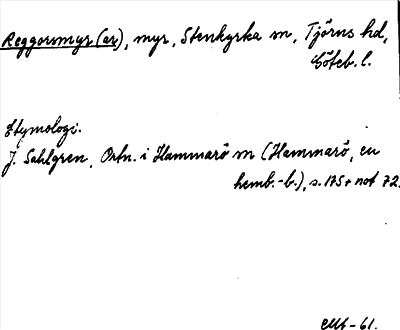 Reggorsmyr (ar), myr, Stenkyrka sn, Tjörns hd,
Göteb. l.
Etymologi.
J. Sahlgren, Ortn. i Hammarö sn (Hammarö, en
hemb.-b.), s. 175 + not 72.
-61.